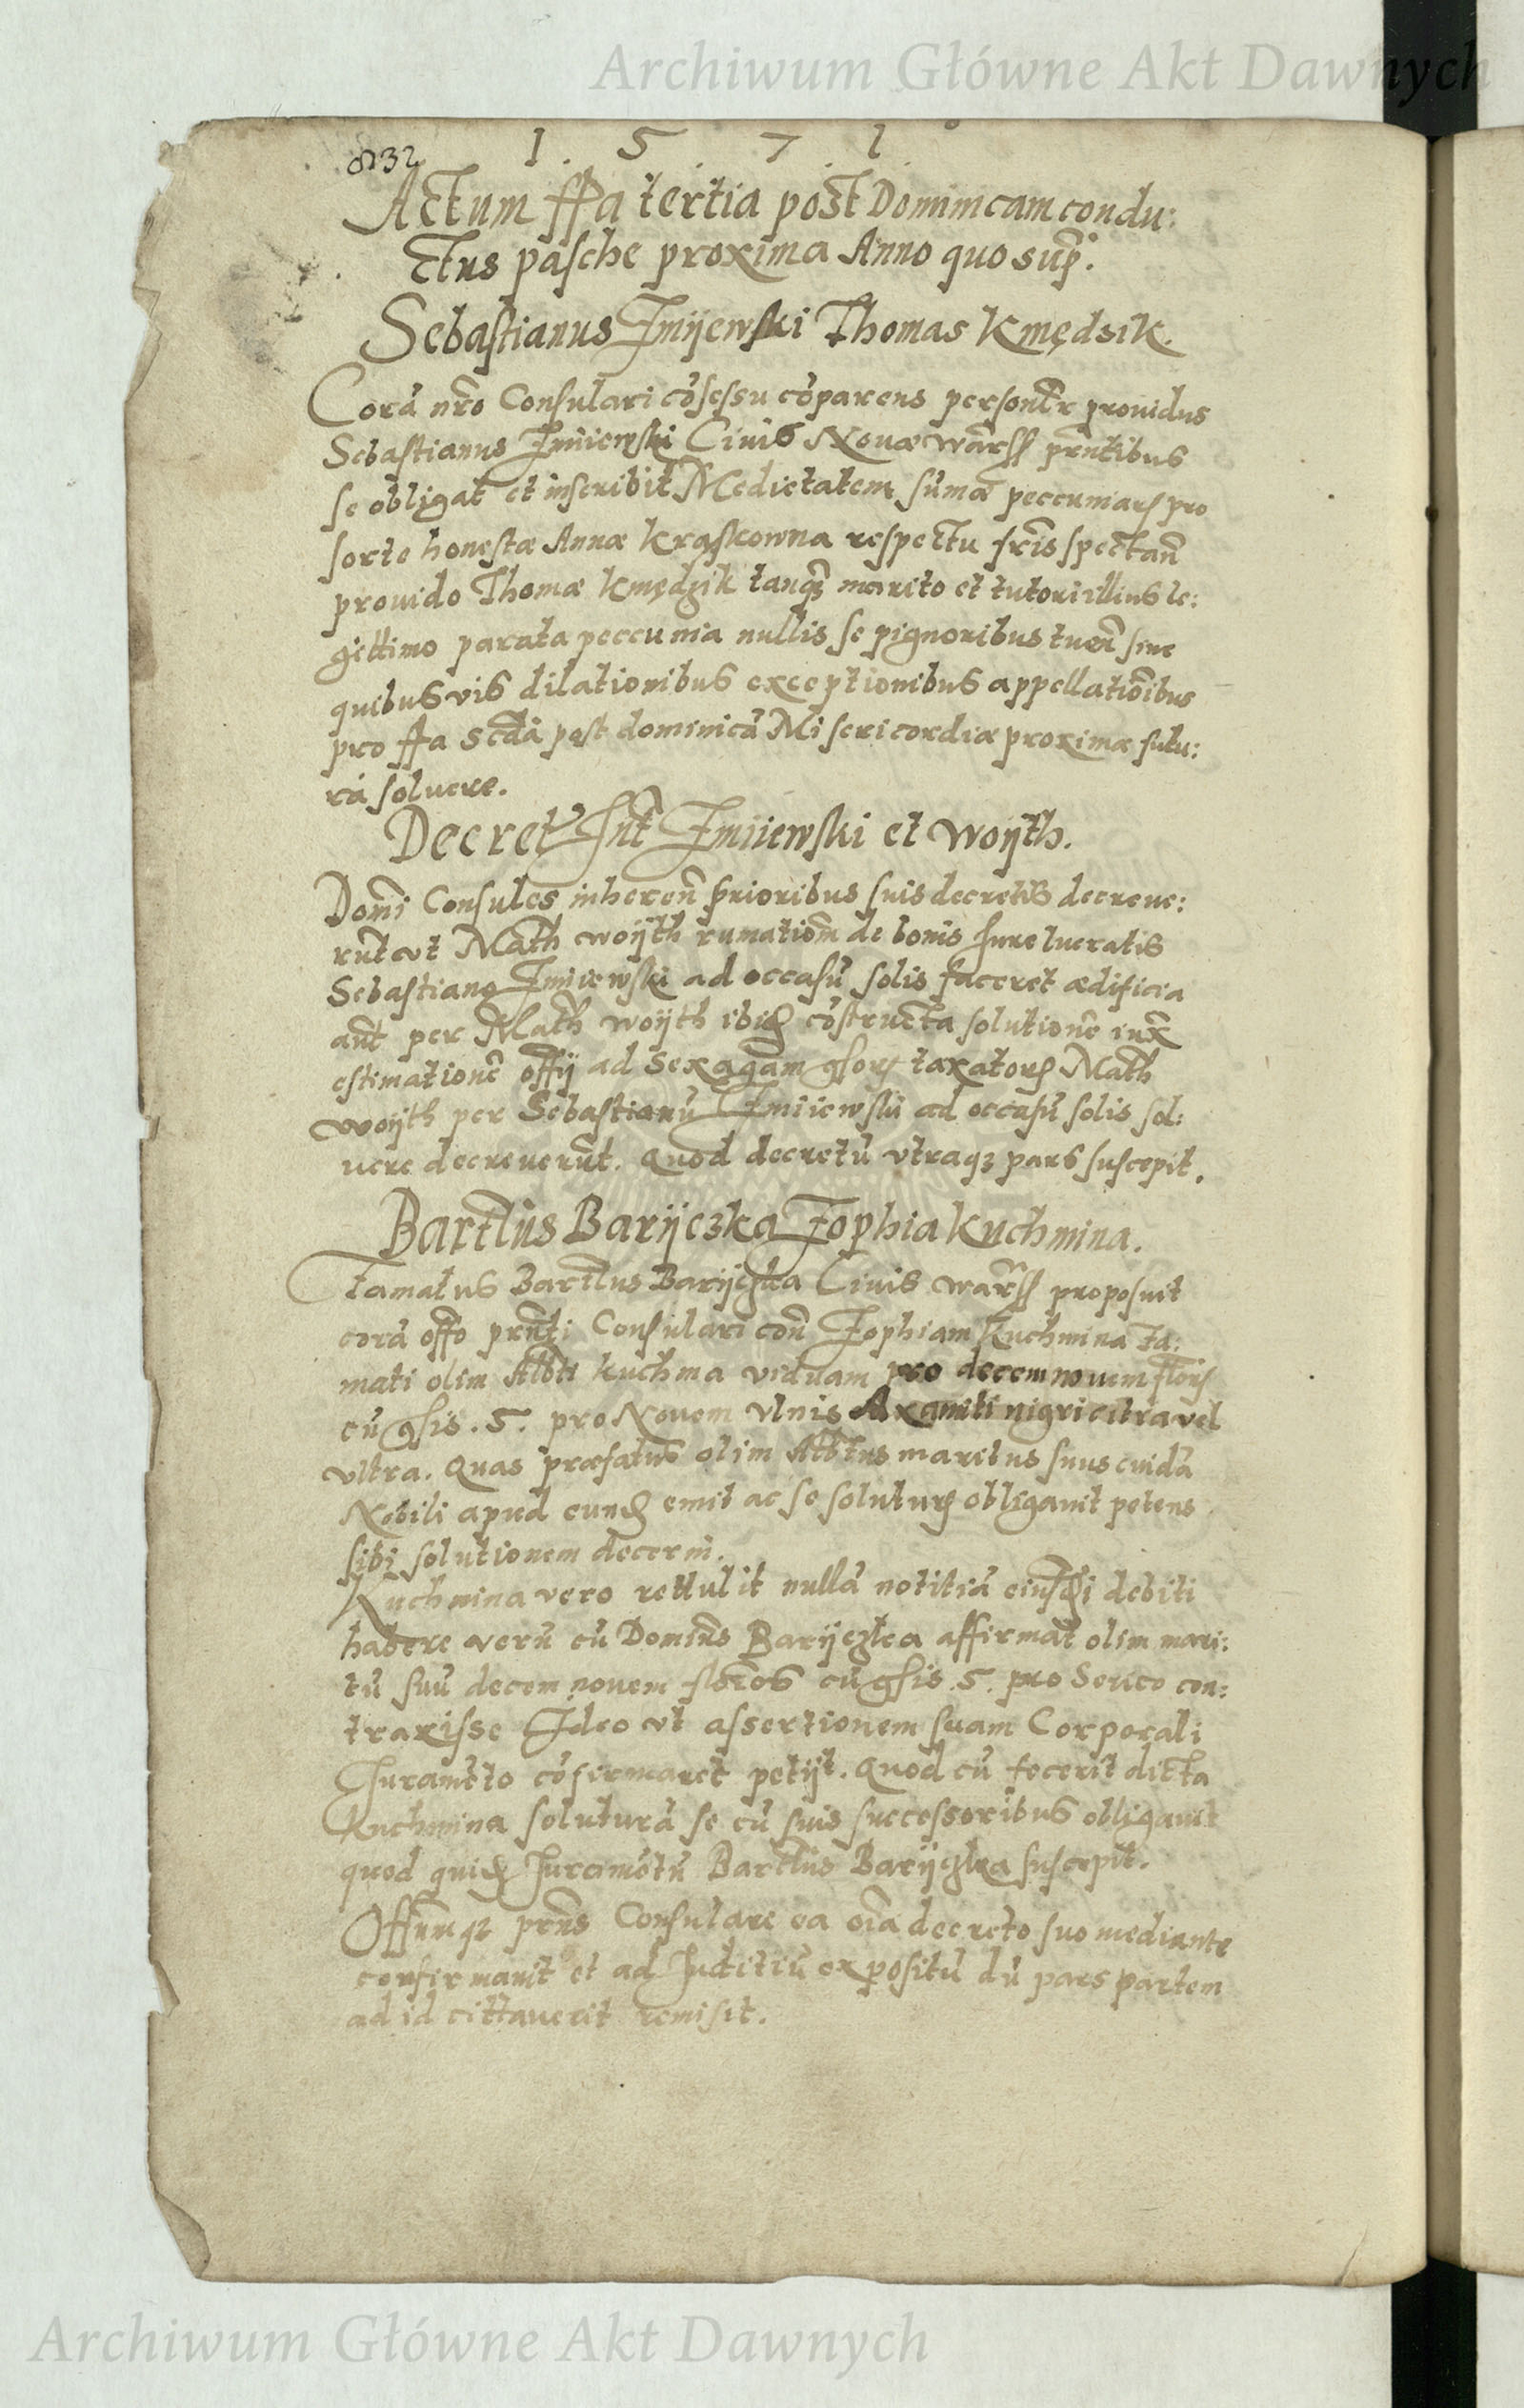 Archiwum Główne Akt Dawnych
1 5 7 1
Actum ffa tertia post Dominicam condu:
ctus pasche proxima Anno quo sup̃:
Sebastianus Zmijewski Thomas Kmędzik.
Corã nr̃o Consulari cõsessu cõparens personlr̃ prouidus
Sebastianus Zmiiewski Ciuis Nouæ warss prñtibus
se obligat et inscribit Medietatem sumæ peccuniarȝ pro
sorte honestæ Annæ Kraskowna respectu fr̃is spectañ
prouido Thomæ Kmędzik tanqȝ marito et tutori illius le:
gittimo parata peccunia nullis se pignoribus tueñ sine
quibusvis dilationibus exceptionibus appellatiõibus
pro ffa scdã post dominicã Misericordiæ proximæ futu:
rã soluere.
Decretũ Int̃ Zmiiewski et Woyth.
Domi Consules inhereñ prioribus suis decretis decreue:
runt vt Math woyth rumatiom̃ de bonis Iure lucratis
Sebastiano Zmiiewski ad occasũ solis faceret ædificia
aũt per Math woyth ibiȝ cõstructa solutionẽ iux̃
estimationẽ offij ad sexagam̃ gsorȝ taxatorȝ Math
woyth per Sebastianũ Zmiiewski ad occasũ solis sol:
uere decreuerũt. Quod decretũ vtraqȝ pars suscepit.
Bartl̃us Baryczka Zophia Kuchmina.
Famatus Bartl̃us Baryczka Ciuis warss proposuit
corã offo prñti Consulari coñ Zophiam Kuchmina fa:
mati olim Albti Kuchma viduam pro decem nouem florȝ
cũ gsis .5. pro Nouem vlnis Axamiti nigri citra vel
vltra. Quas præfatus olim Albtus maritus suus cuidã
Nobili apud eundȝ emit ac se soluturȝ obligauit petens
sibi solutionem decerni.
Kuchmina vero rettulit nullã notitiã eiusdj debiti
habere verũ cũ Domĩns Baryczka affirmat olim mari:
tũ suũ decem nouem flor̃os cũ gsis .5. pro Serico con:
traxisse Ideo vt assertionem suam Corporali
Iuramẽto cõfirmaret petijt. Quod cũ fecerit dicta
Kuchmina soluturã se cũ suis successoribus obligauit
quod quidȝ Iuramẽtũ Bartl̃us Baryczka suscepit.
Offiumqȝ prñs Consulare ea oĩa decreto suo mediante
confirmauit et ad Iuditiũ expositũ dũ pars partem
ad id cittauerit remisit.
Archiwum Główne Akt Dawnych